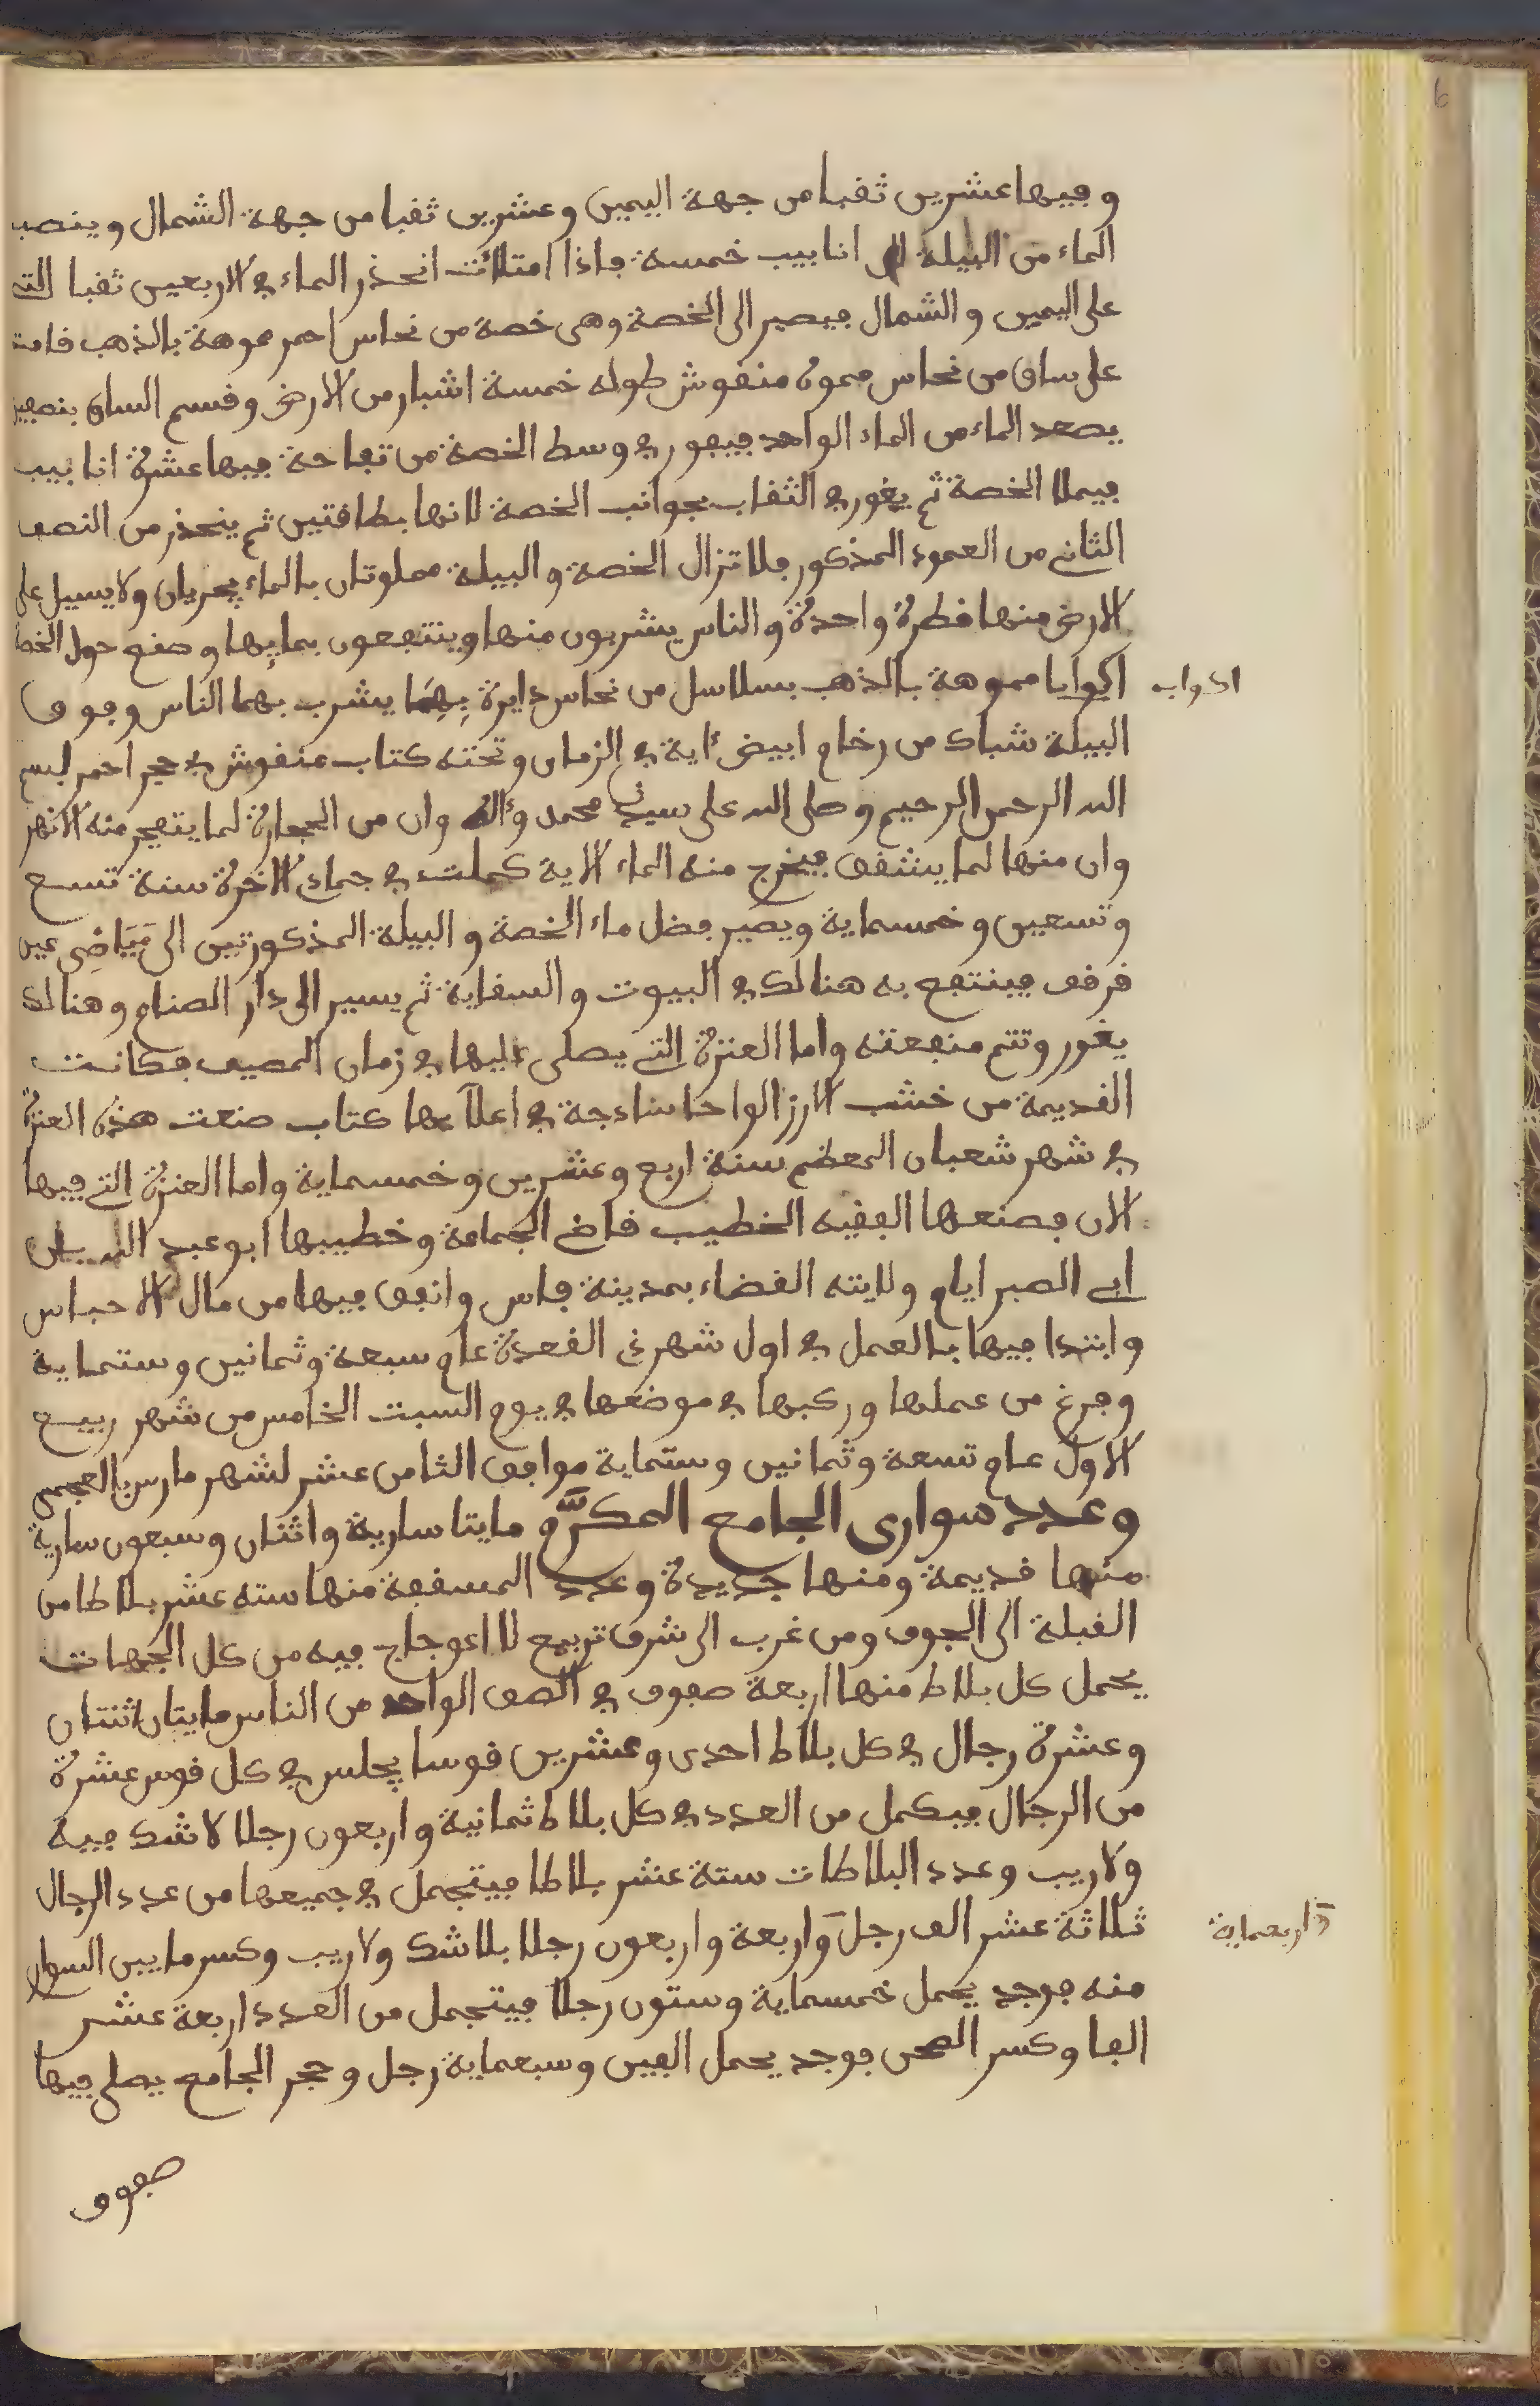 وفيها عشرين ثقبا من جهة اليمين وعشرين ثقبا من جهة الشمال وينصب
الماء من البيلة الى انابيب خمسة فاذا امتلأت انحذر الماء في الاربعين ثقبا التي
على اليمين والشمال فيصير الى الخصة وهى خصة من نحاس احمر مموهة بالذهب قامت
على ساق من نحاس مموه منقوش طوله خمسة اشبار من الارض وقسم الساق بنصفين
يصعد الماء من الماء الواحد فيفور في وسط الخصة من تفاحة فيها عشرة انابيب
فيملا الخصة ثم يغور في الثقاب بجوانب الخصة لانها بطاقتين ثم ينحذر من النصف
الثاني من العمود المذكور فلا تزال الخصة والبيلة مملوتان بالماء يجريان ولا يسيل على
الارض منها قطرة واحدة والناس يشربون منها وينتفعون بمايها وصنع حول الخصة
اكوابا مموهة بالذهب بسلاسل من نحاس دايرة بهما يشرب بهما الناس وفوق
اكواب
البيلة شباك من رخام ابيض ءاية في الزمان وتحته كتاب منقوش في حجر احمر بسم
الله الرحمن الرحيم وصلى الله على سيدنا محمد وءاله وان من الحجارة لما يتفجر منه الانهر
وان منها لما يشقق فيخرج منه الماء الاية كملت في جمادى الاخرة سنة تسع
وتسعين وخمسماية ويصير فضل ماء الخصة والبيلة المذكورتين الى مَيَاضِى عين
قرقف فينتفع به هنالك في البيوت والسقاية ثم يسير الى دار الصنام وهنالك
يغور وتتم منفعته واما العنزة التي يصلى اليها في زمان المصيف فكانت
القديمة من خشب الارز الواحا ساذجة في اعلاها كتاب صنعت هذه العنزة
في شهر شعبان المعظم سنة اربع وعشرين وخمسماية واما العنزة التي فيها
الان فصنعها الفقيه الخطيب قاضي الجماعة وخطيبها ابو عبد الله بن
ابي الصبر ايام ولايته القضاء بمدينة فاس وانفق فيها من مال الاحباس
وابتدا فيها بالعمل في اول شهر ذي القعدة عام سبعة وثمانين وستماية
وفرغ من عملها وركبها في موضعها في يوم السبت الخامس من شهر ربيع
الاول عام تسعة وثمانين وستماية موافق الثامن عشر لشهر مارس بالعجمي
وعدد سوارى الجامع المكرَّم مايتا سارية واثنان وسبعون سارية
منها قديمة ومنها جديدة وعدد المسقفة منها سته عشر بلاطا من
القبلة الى الجوف ومن غرب الى شرق تربيع لا اعوجاج فيه من كل الجهات
يحمل كل بلاط منها اربعة صفوف في الصف الواحد من الناس مايتان اثنتان
وعشرة رجال في كل بلاط احدى وعشرين قوسا يجلس في كل قوس عشرة
من الرجال فيكمل من العدد في كل بلاط ثمانية واربعون رجلا لا شك فيه
ولا ريب وعدد البلاطات ستة عشر بلاطا فيتجمل في جميعها من عدد الرجال
ثلاثة عشر الف رجل واربعة واربعون رجلا بلا شك ولا ريب وكسر ما بين السوار
واربعماية
منه فوجد يحمل خمسماية وستون رجلا فيتجمل من العدد اربعة عشر
الفا وكسر الصحن فوجد يحمل الفين وسبعماية رجل وحجر الجامع يصلى فيها
صفوف